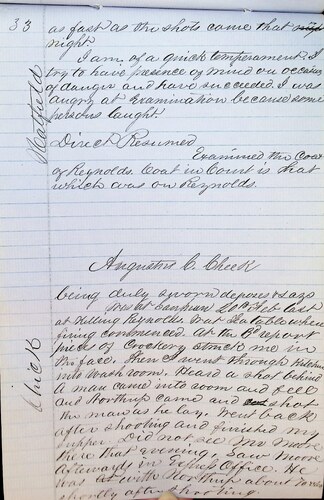 33
as fast as the shots came that
night
I am of a quick temperament. I
try to have presence of mind on occasions
of danger and have succeeded. I was
angry at Examination because some
persons laught
Hatfield
Direct Resumed
Examined the Coat
of Reynolds. Coat in Court is that
which was on Reynolds.
Augustus C. Cheek
Cheek
being duly sworn deposes & says
Was at 28th Feb last
at killing Reynolds. Was at table when
firing commenced. At the report
pieces of Crockery struck me in
the face. Then I went through Kitchen
into Wash room. Heard a shot behind
A man came into room and fell
and Northrup came and shot
the man as he lay. Went back
after shooting and finished my
supper. Did not see Mr Moon
there that evening. Saw Moon
Afterwards in Office. He
was with Northrup about
shortly after shooting